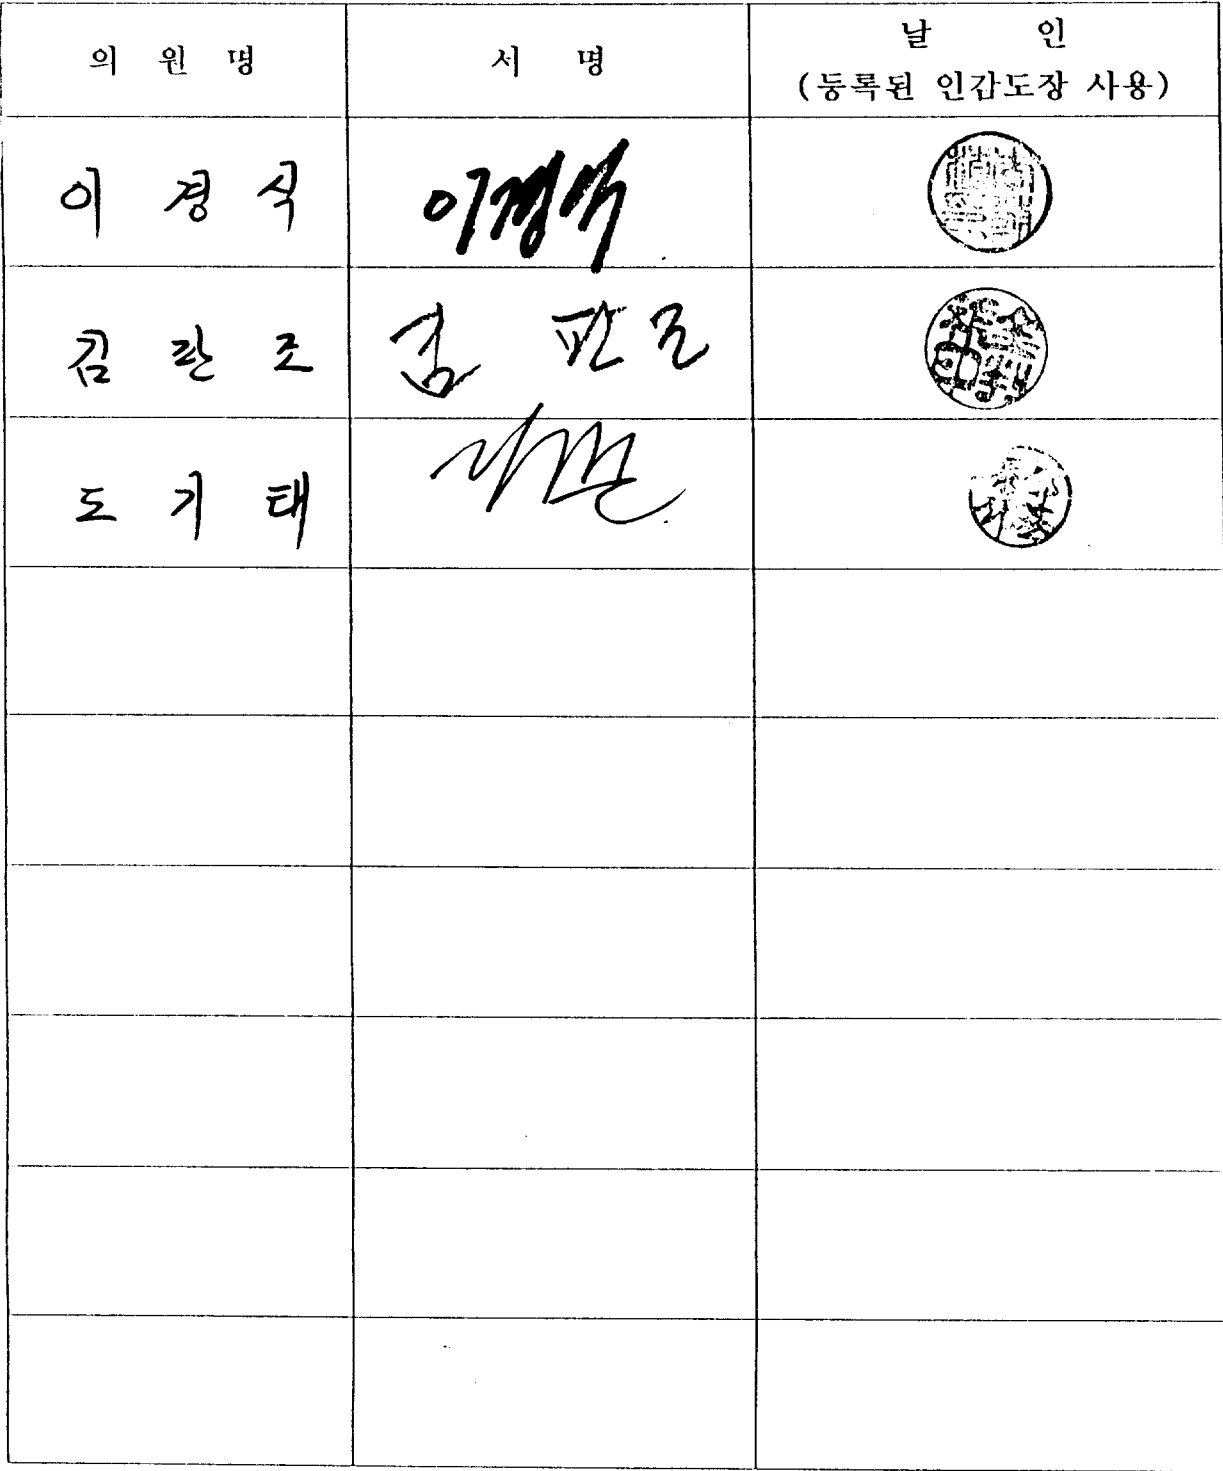 의 원 명
서 명
날 인
(등록된 인감도장 사용)
이 경 식 이경식
김 판 조 김 판 조
도 기 태